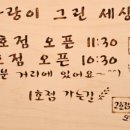 랑이 그린 세상
호점 오픈 11:30
호점 오픈 10:30
분 거리에 있어요~^^
1호점 가는길